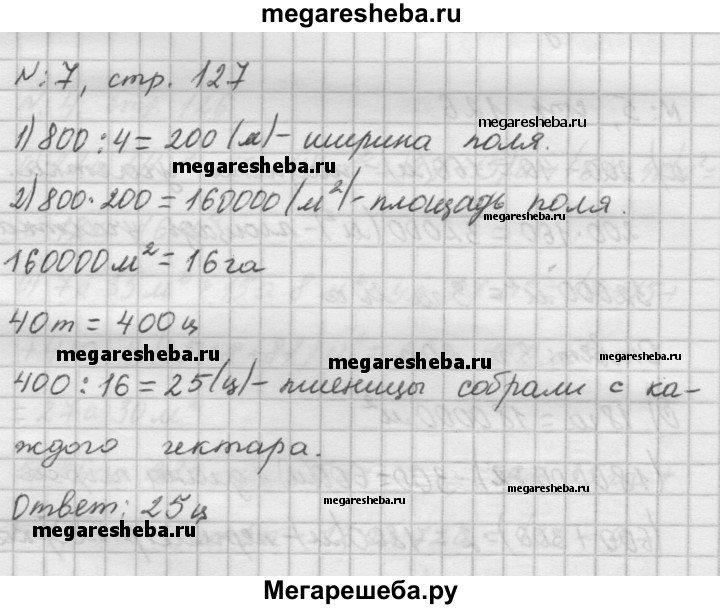 megaresheba.ru
№7, стр. 127
1) 800 : 4 = 200 (м) - ширина поля.
megaresheba.ru
megaresheba.ru
2) 800 · 200 = 160000 (м²) - площадь поля.
megaresheba.ru
160000м² = 16 га
40т = 400ц
megaresheba.ru
megaresheba.ru
megaresheba.ru
400 : 16 = 25 (ц) - пшеницы собрали с ка-
ждого гектара.
megaresheba.ru
megaresheba.ru
Ответ: 25ц
megaresheba.ru
Мегарешеба.ру